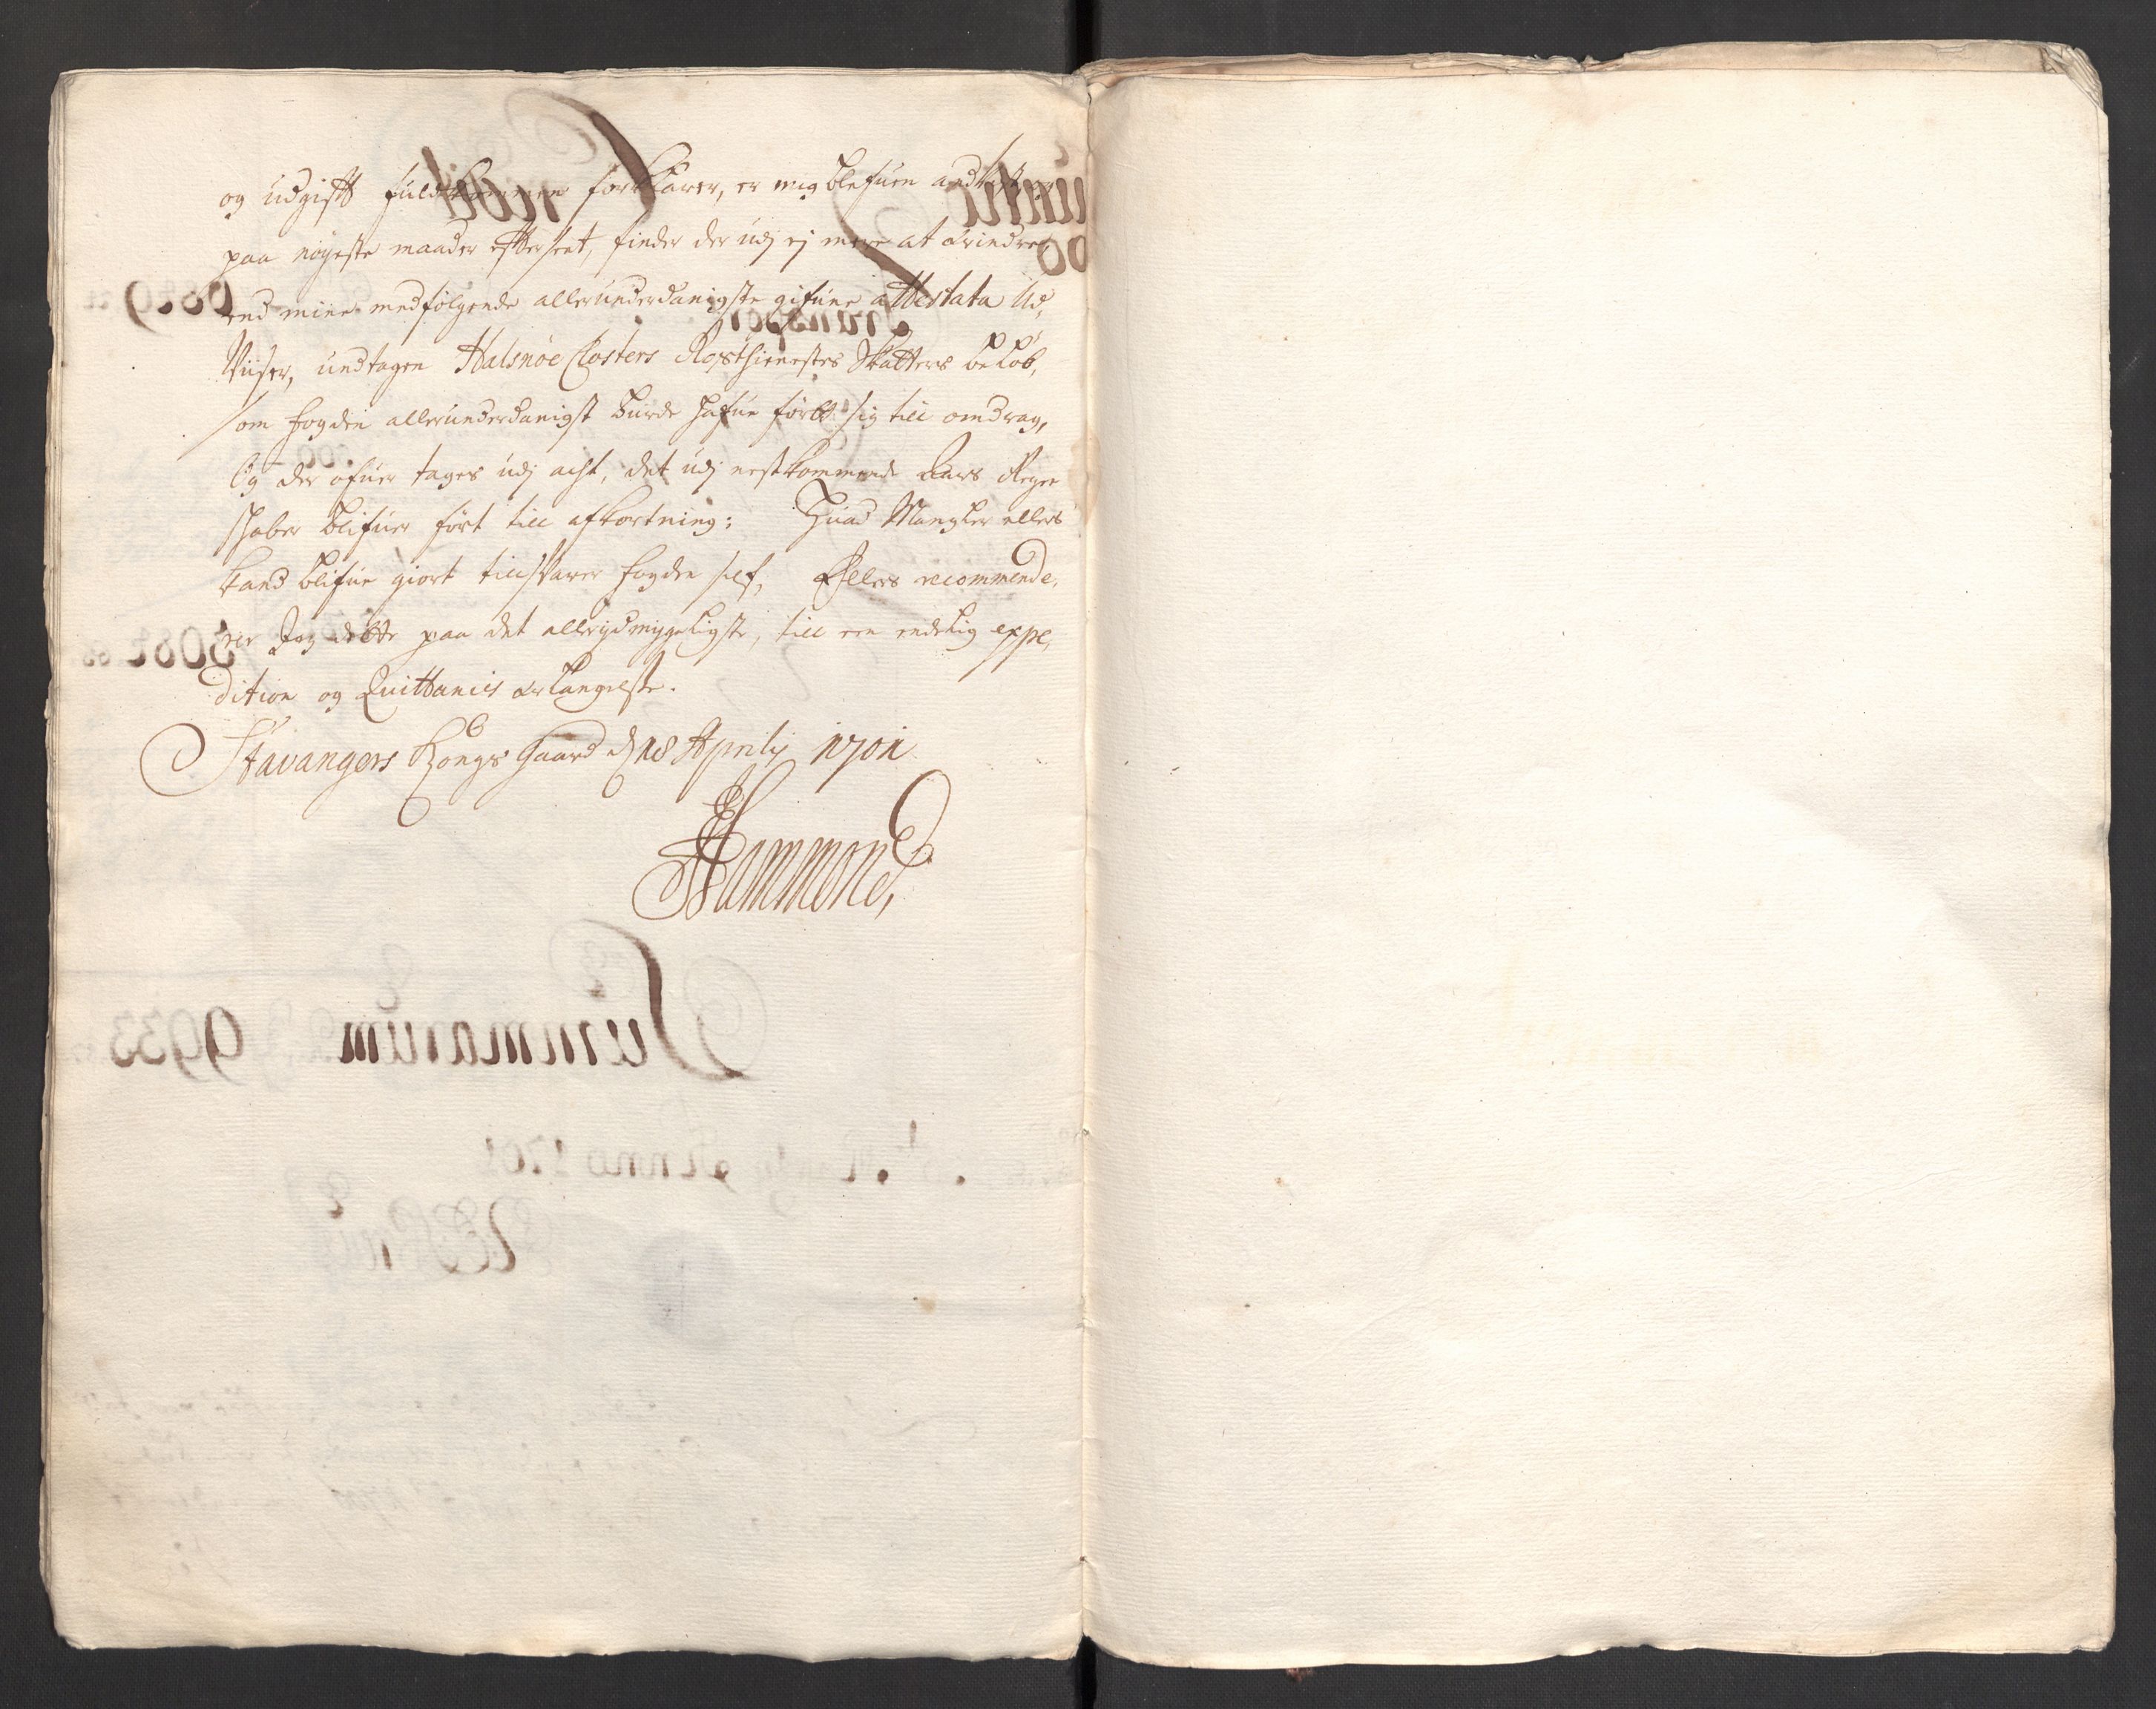 og Udgifft fuldkommen forklarer, er mig blefuen
paa nøyeste maader effterseet, finder der udj ej mere at Erindre,
end mine medfølgende allerunderdanigste gifune attestata Ud,
Viiser, undtagen Halsnöe Closters Rosthienestes Skatters beløb,
som fogden allerunderdanigst burde hafue ført sig till
Og der ofuer tages udj acht, det udj nestkommende Aars Regen
skaber blifuer ført till afkortning; Huad Mangler ellers
kand blifue giort tillsvarer fogden self, Ellers recommende,
rer Jeg dette paa det allerydmygeligste, till een endelig expe,
dition og Quittancis erlangelse.
Stavangers Kongs Gaard d 18 Aprilis 1701
Hammond,